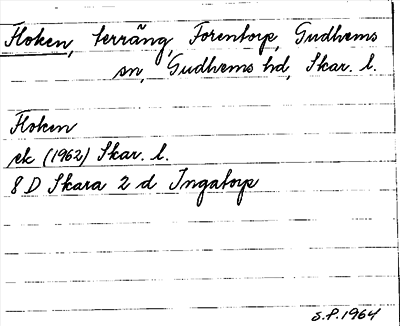 Floken, terräng, Forentorp, Gudhems
sn, Gudhems hd, Skar. l.
Floken
ek (1962) Skar. l.
8 D Skara 2 d Ingatorp
S.F. 1964